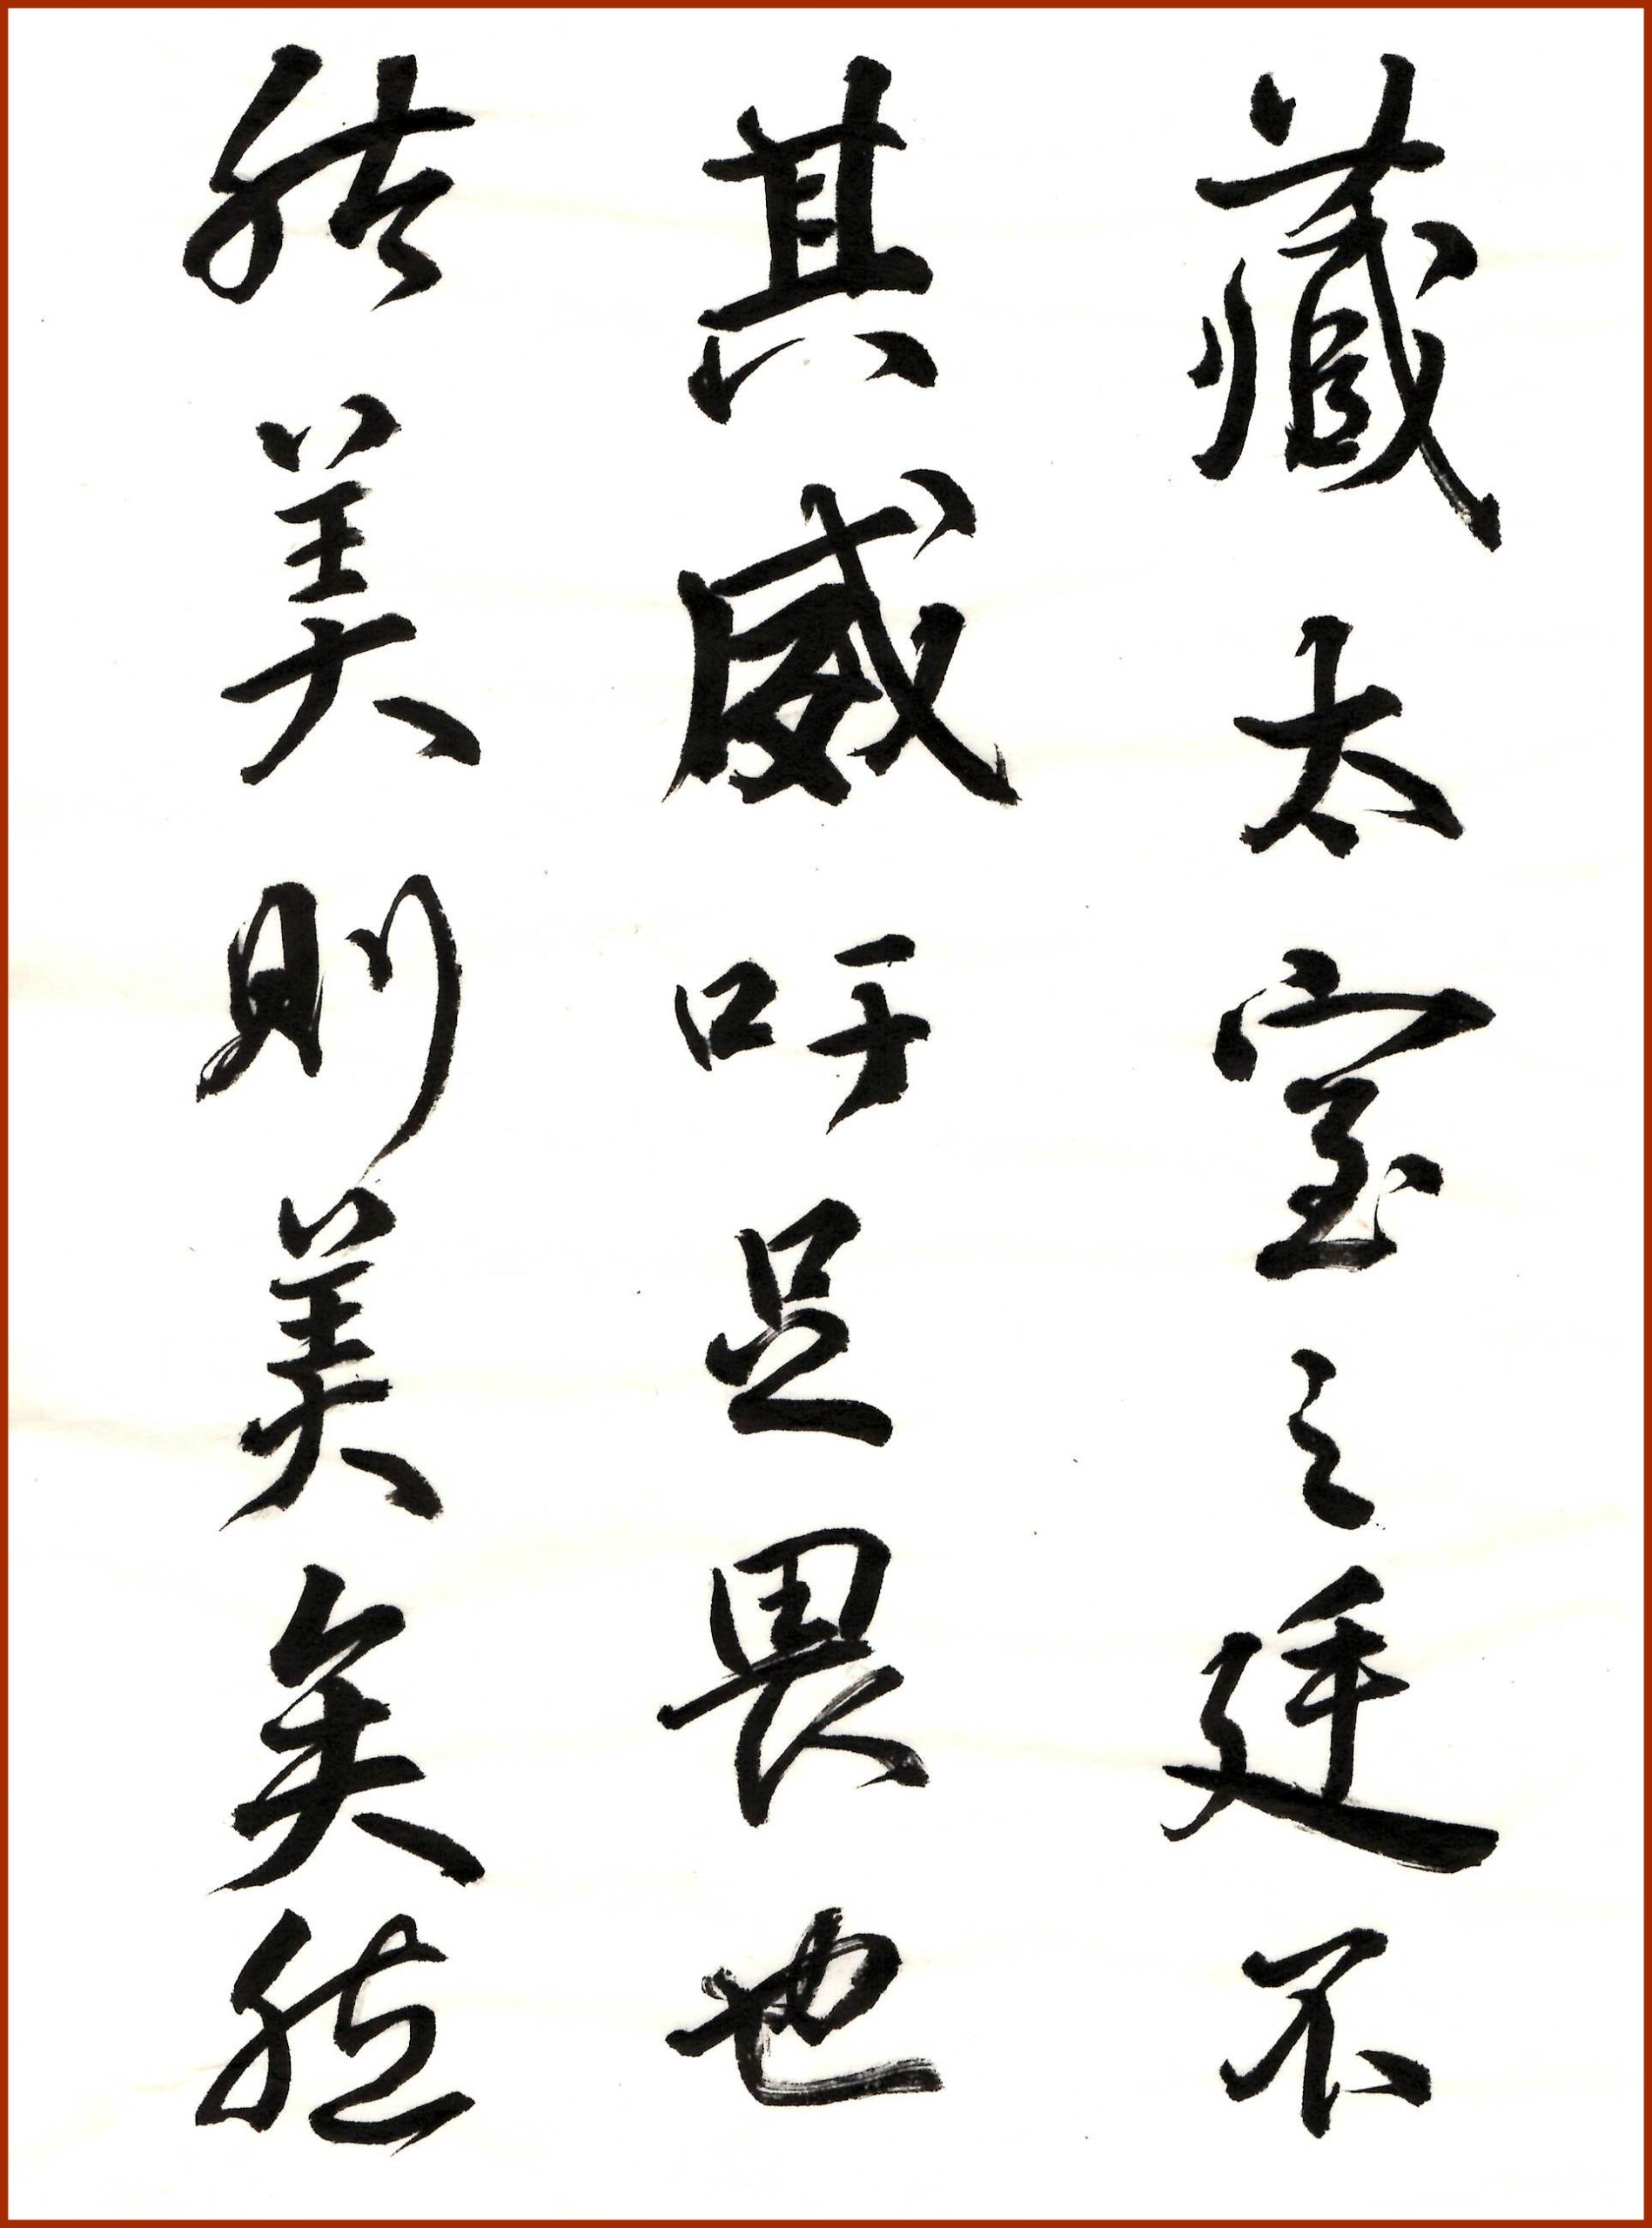 藏太室之廷不
其威吁足畏也
然美則美矣然